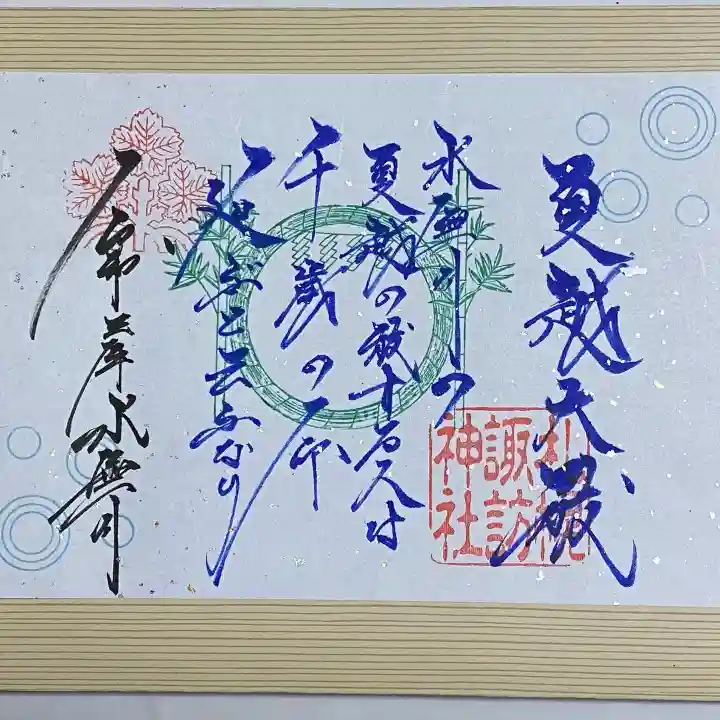 夏越大祓
札幌
諏訪
神社
水無月の
夏越の祓する人は
千歳の命
延ぶと云ふなり
水無月